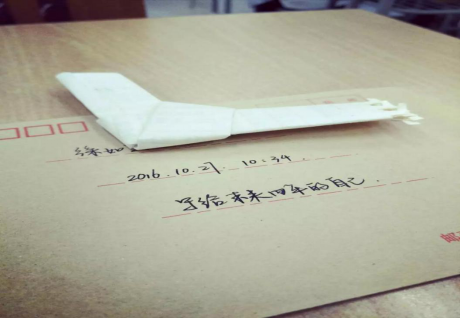 2016.10.27. 10:34.
写给未来四年的自己.